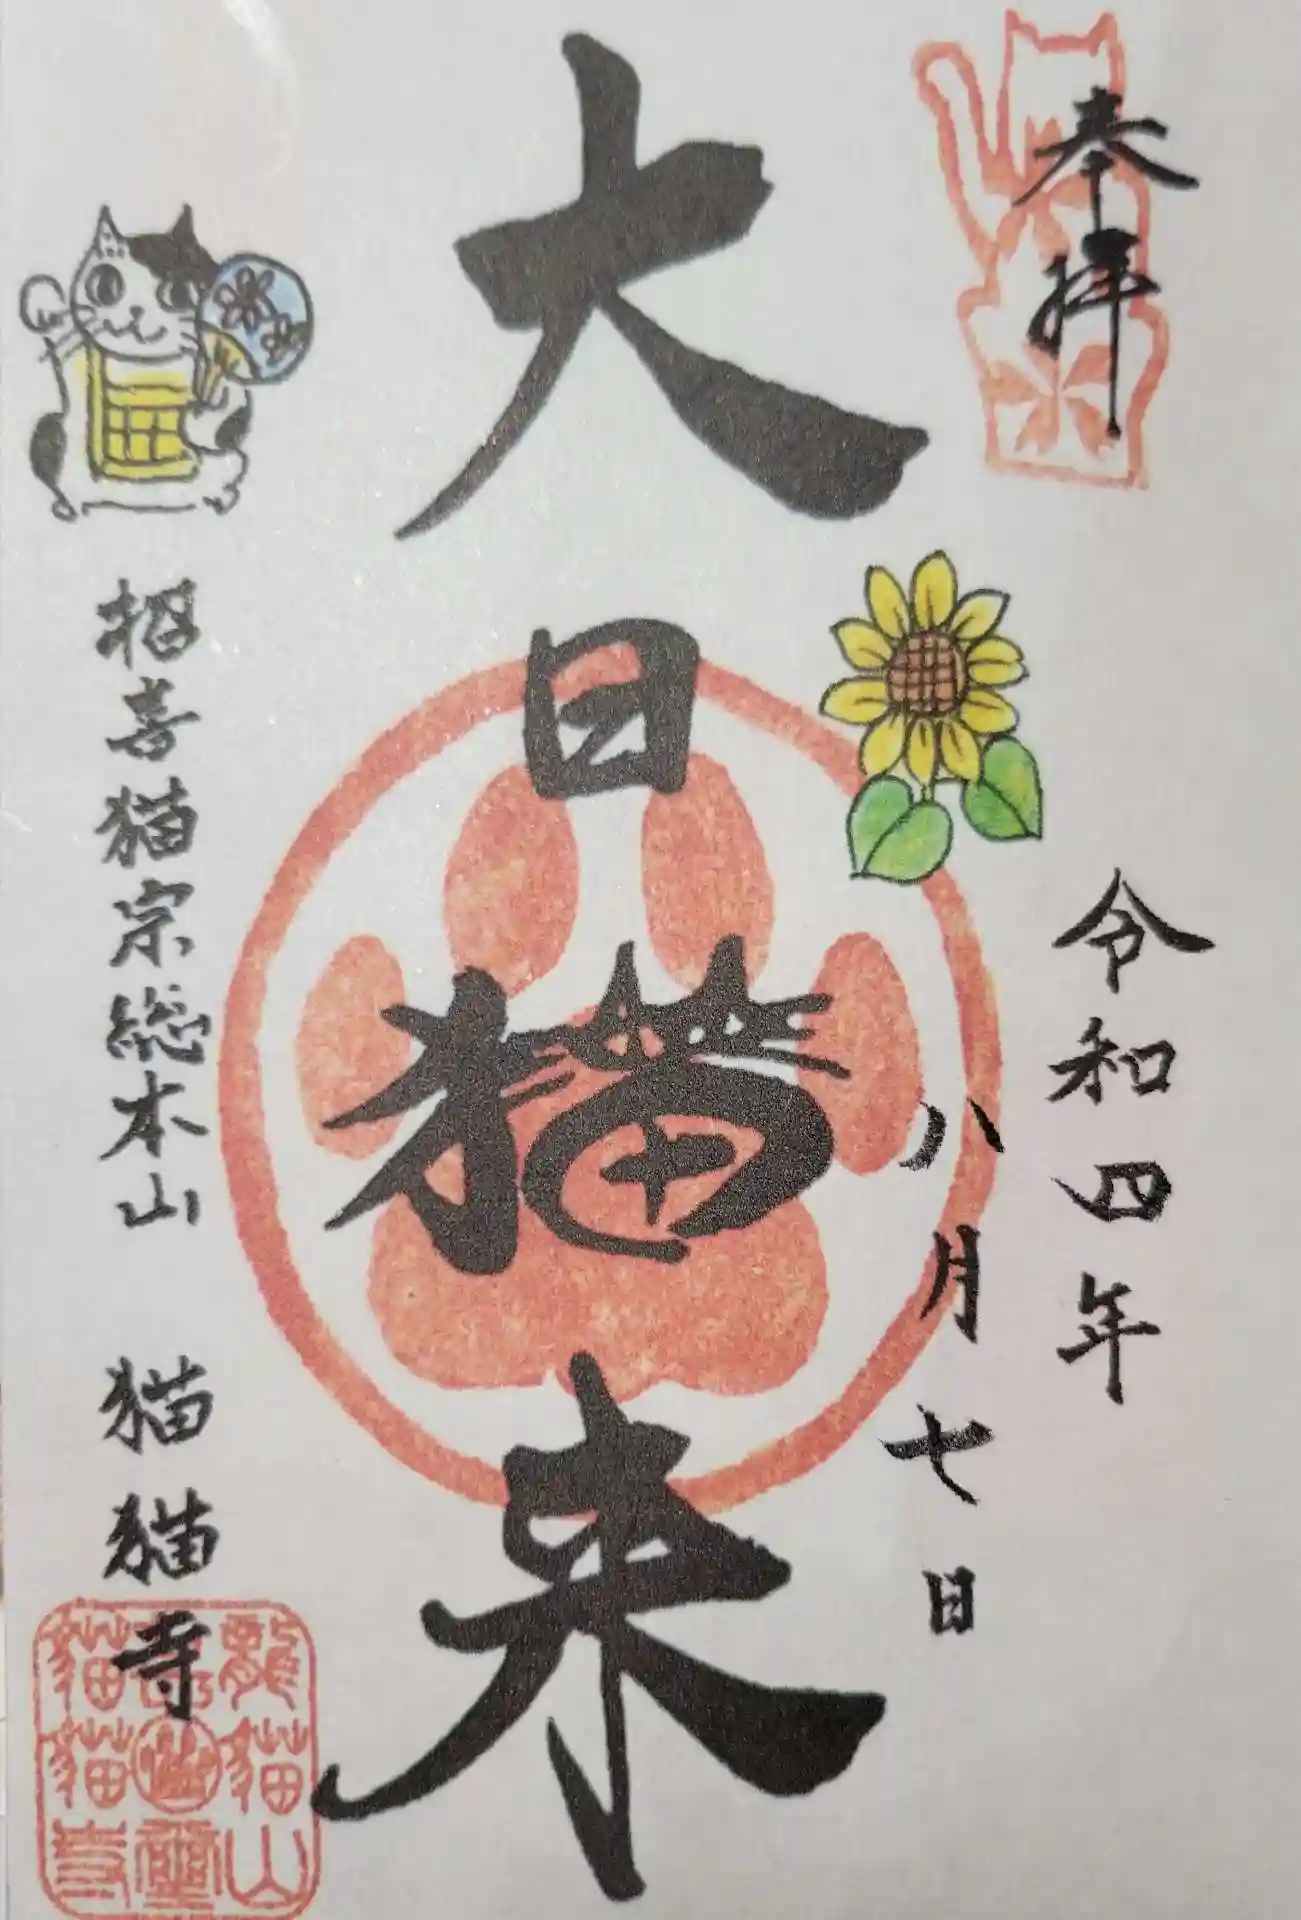 奉拝
令和四年
八月七日
大日猫来
招喜猫宗総本山 猫猫寺
龍猫山
猫猫寺